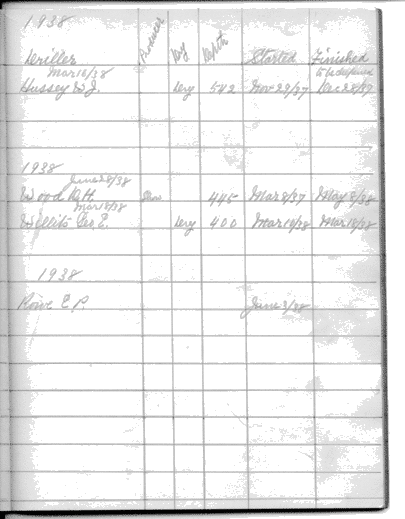 1938
Driller Producer Dry Depth Started Finished
Mar 16/38 to be deepened
Hussey W.J. Dry 542 Nov 29/37 Dec 28/37
1938
June 28/38
Wood R.H. Show 445 Mar 8/37 May 8/38
Mar 18/38
Willits Geo. E. Dry 400 Mar 16/38 Mar 18/38
1938
Rowe E.P. June 3/38